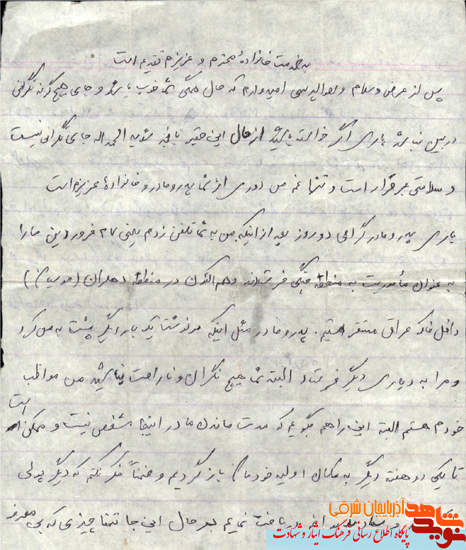 به خدمت خانواده محترم و عزیزم تقدیم است
پس از عرض سلام و احوالپرسی امیدوارم که حال همگی شما خوب باشد و جای هیچگونه نگرانی
در بین نباشد باری اگر خواسته باشید از حال این حقیر باخبر شوید الحمدالله جای نگرانی نیست
و سلامتی برقرار است و تنها غم من دوری از شما پدر و مادر و خانواده عزیزم است
باری پدر و مادر گرامی دو روز بعد از اینکه من به شما تلفن زدم یعنی ۲۷ فروردین ما را
به عنوان مأموریت به منطقه جنگی فرستادند و هم اکنون در منطقه دهلران (موسیان)
داخل خاک عراق مستقر هستیم. پدر و مادر مثل اینکه سرنوشت یک بار دیگر پشت به من کرد
و مرا به دیاری دیگر فرستاد البته شما هیچ نگران و ناراحت نباشید من مواظب
خودم هستم البته این را هم بگویم که مدت ماندن ما در اینجا مشخص نیست و ممکن است
تا یکی دو هفته دیگر به مکان اولیه خودمان باز گردیم و ضمناً فکر نکنم که دیگر پولی
دریافت نمایم در حال این جا تنها چیزی که بی
آذربایجان شرقی
نوید شاهد
پایگاه اطلاع رسانی فرهنگ ایثار و شهادت